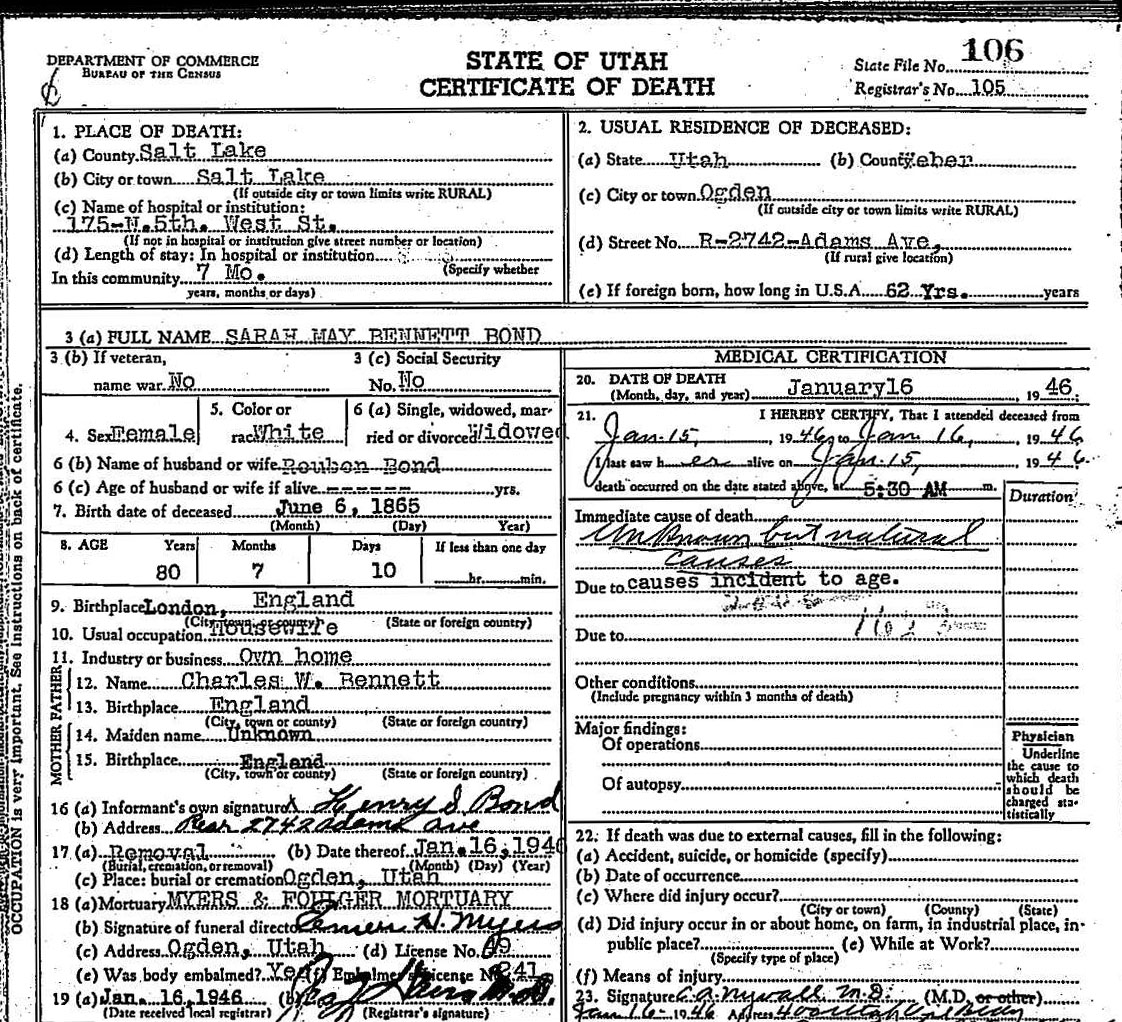 DEPARTMENT OF COMMERCE
BUREAU OF THE CENSUS
STATE OF UTAH
CERTIFICATE OF DEATH
State File No. 106
Registrar's No. 105
1. PLACE OF DEATH:
(a) County Salt Lake
(b) City or town Salt Lake
(If outside city or town limits write RURAL)
(c) Name of hospital or institution:
175-N.5th. West St.
(If not in hospital or institution give street number or location)
(d) Length of stay: In hospital or institution
(Specify whether
In this community 7 Mo.
years, months or days)
2. USUAL RESIDENCE OF DECEASED:
(a) State Utah (b) County Weber
(c) City or town Ogden
(If outside city or town limits write RURAL)
(d) Street No. R-2742-Adams Ave.
(If rural give location)
(e) If foreign born, how long in U.S.A. 62 Yrs. years
3 (a) FULL NAME SARAH MAY BENNETT BOND
3 (b) If veteran,
name war No
3 (c) Social Security
No. No
4. Sex Female
5. Color or
race White
6 (a) Single, widowed, mar-
ried or divorced Widowed
6 (b) Name of husband or wife Reuben Bond
6 (c) Age of husband or wife if alive ------ yrs.
7. Birth date of deceased June 6, 1865
(Month) (Day) Year)
8. AGE Years Months Days If less than one day
80 7 10 hr. min.
9. Birthplace London, England
(City, town or county) (State or foreign country)
10. Usual occupation Housewife
11. Industry or business Own home
FATHER
12. Name Charles W. Bennett
13. Birthplace England
(City, town or county) (State or foreign country)
MOTHER
14. Maiden name Unknown
15. Birthplace England
(City, town or county) (State or foreign country)
16 (a) Informant's own signature X Henry S Bond
(b) Address Rear 2742 Adams Ave
17 (a) Removal (b) Date thereof Jan. 16, 1946
(Burial, cremation, or removal) (Month) (Day) (Year)
(c) Place: burial or cremation Ogden, Utah
18 (a) Mortuary MYERS & FOULGER MORTUARY
(b) Signature of funeral director H. Myers
(c) Address Ogden, Utah (d) License No. 69
(e) Was body embalmed? Yes (f) Embalmer's License No. 241
19 (a) Jan. 16, 1946 (b) M.D.
(Date received local registrar) (Registrar's signature)
MEDICAL CERTIFICATION
20. DATE OF DEATH
(Month, day, and year) January 16 1946.
21. I HEREBY CERTIFY, That I attended deceased from
Jan. 15, 1946 to Jan 16, 1946
I last saw her alive on Jan. 15, 1946.
death occurred on the date stated above, at 5:30 AM m.
Duration
Immediate cause of death
Unknown but natural
causes
Due to causes incident to age.
Due to 162
Other conditions
(Include pregnancy within 3 months of death)
Major findings:
Of operations
Of autopsy
Physician
Underline
the cause to
which death
should be
charged sta-
tistically
22. If death was due to external causes, fill in the following:
(a) Accident, suicide, or homicide (specify)
(b) Date of occurrence
(c) Where did injury occur?
(City or town) (County) (State)
(d) Did injury occur in or about home, on farm, in industrial place, in-
public place? (e) While at Work?
(Specify type of place)
(f) Means of injury
23. Signature M.D. (M.D. or other)
Jan 16 1946 Address
OCCUPATION is very important. See instructions on back of certificate.